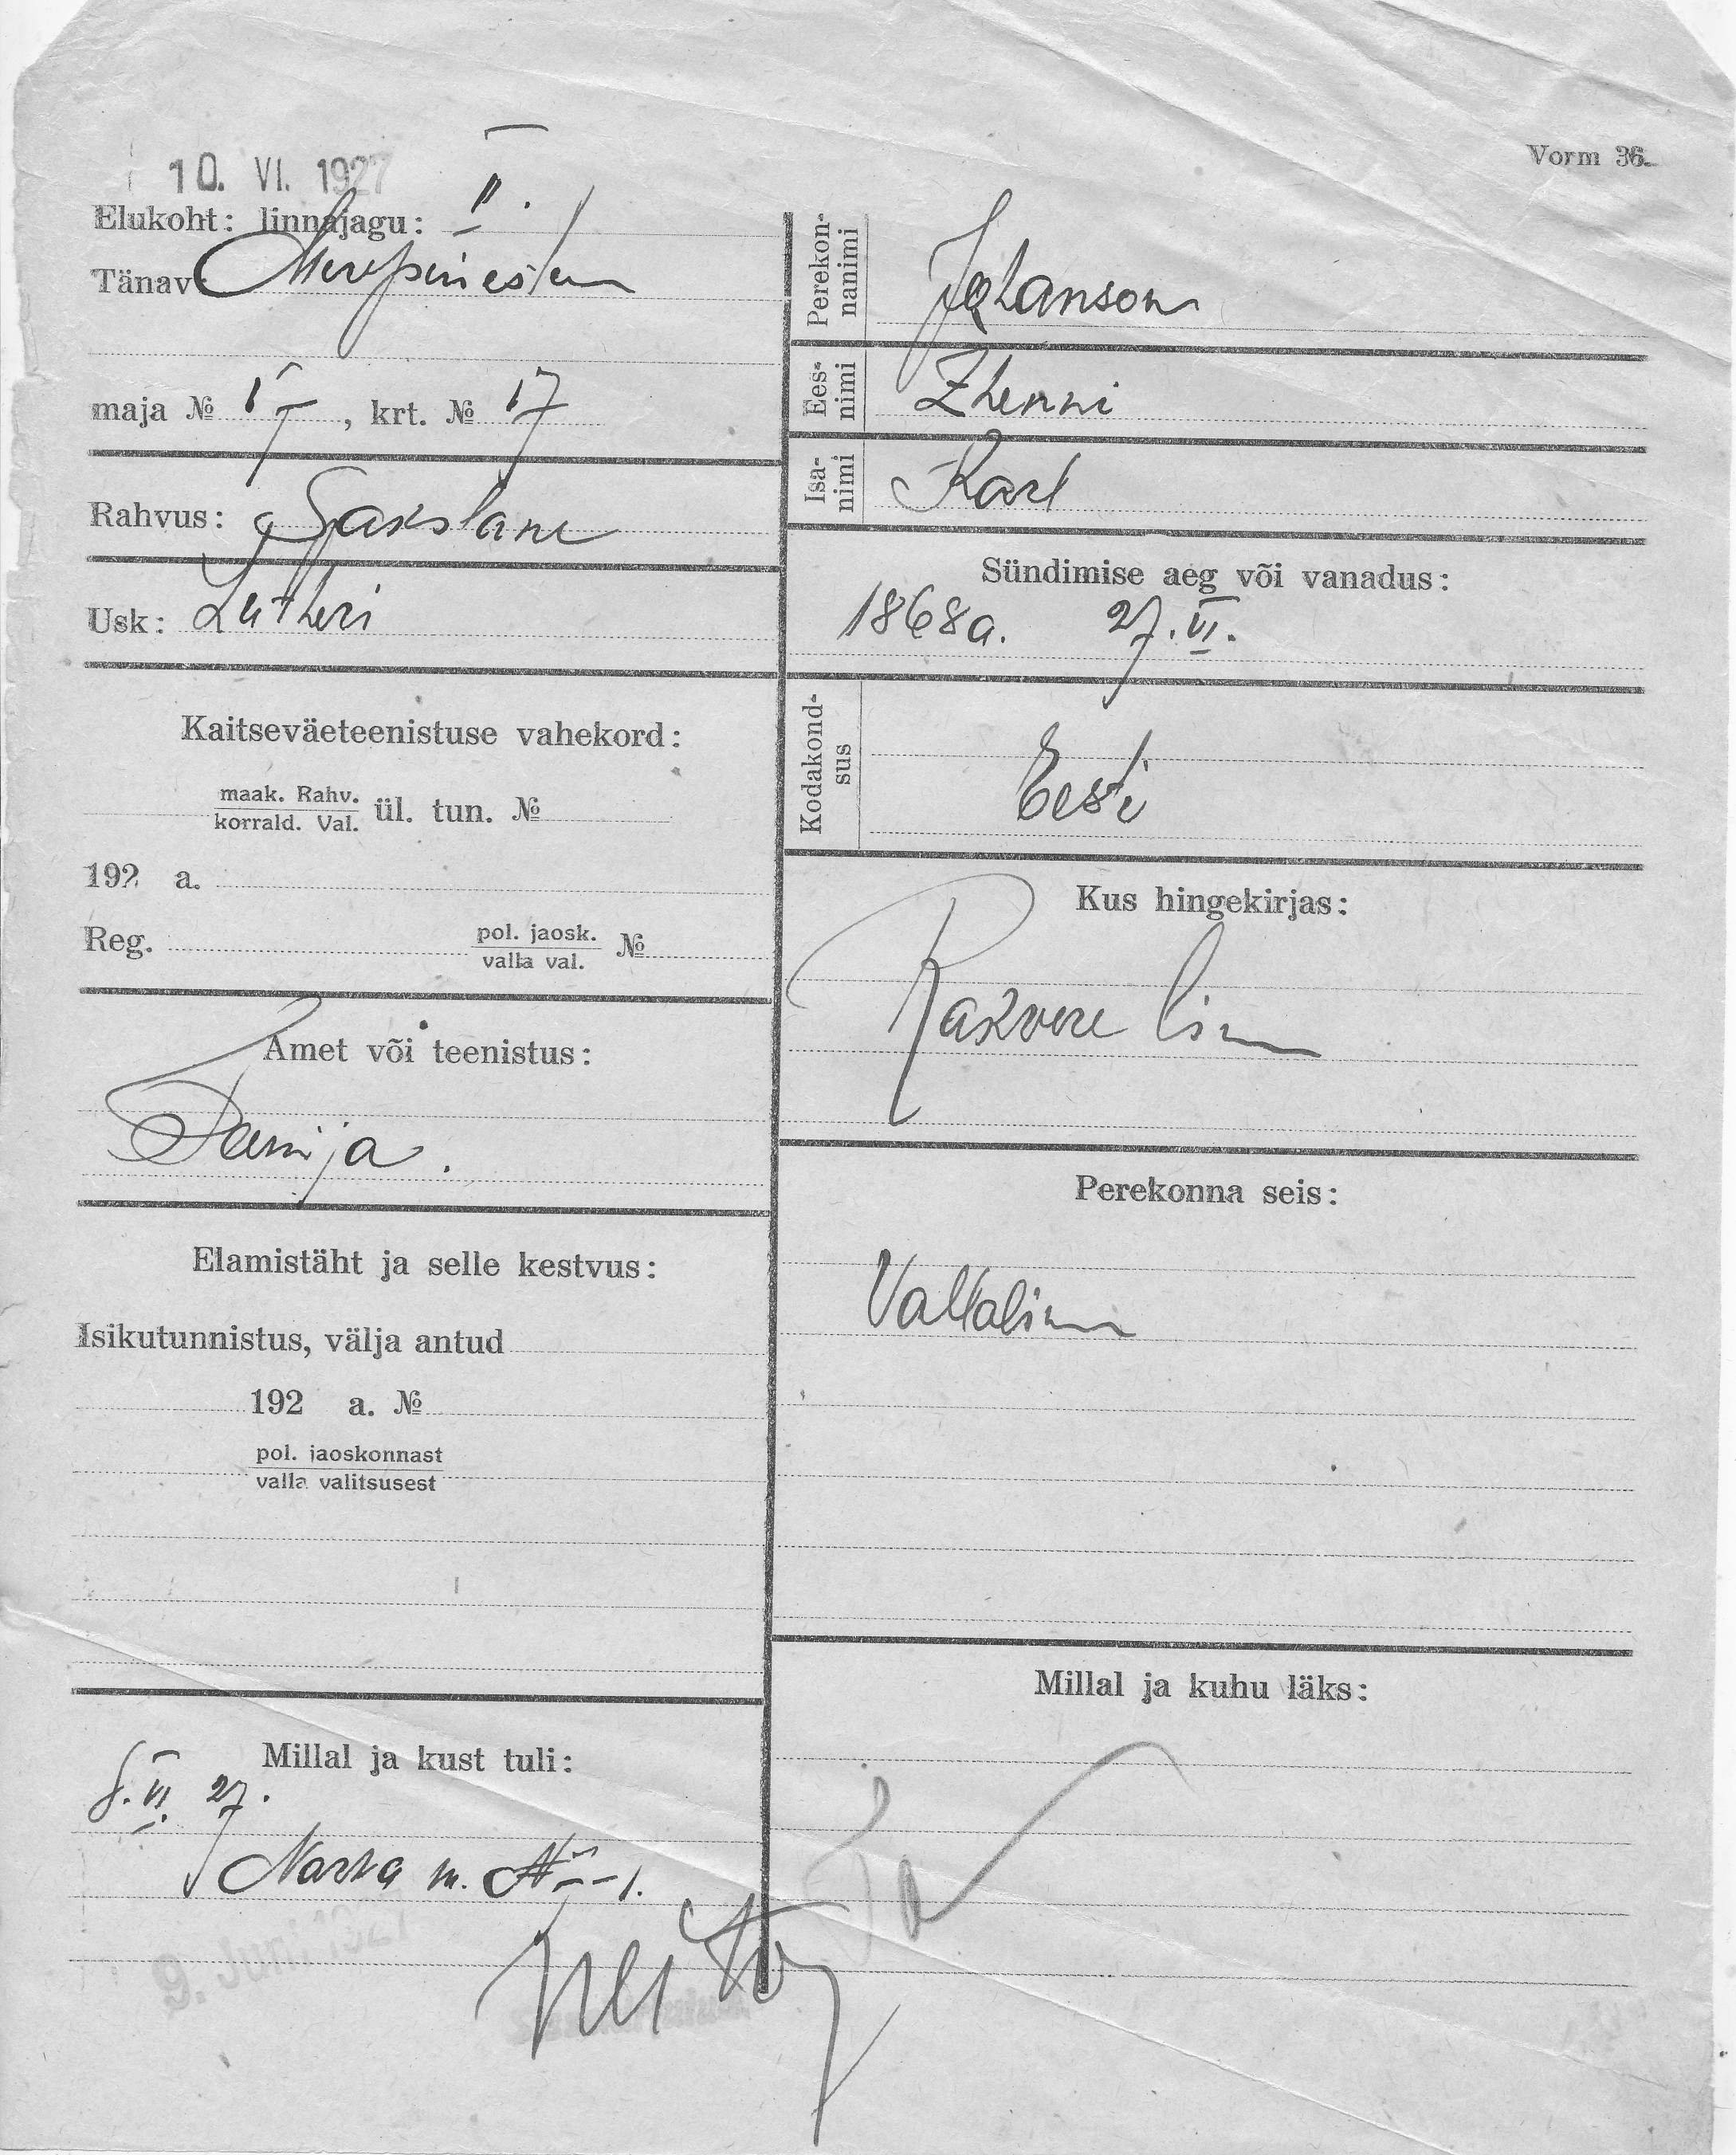 Vorm 36.
10. VI. 1927
Elukoht: linnajagu: II.
Tänav: Merepuiestee
maja № 17, krt. № 17
Rahvus: Sakslane
Usk: Lutheri
Kaitseväeteenistuse vahekord:
maak. Rahv.
korrald. Val. ül. tun. №
192 a.
Reg. pol. jaosk. №
valla val.
Amet või teenistus:
Elamistäht ja selle kestvus:
Isikutunnistus, välja antud
192 a. №
pol. jaoskonnast
valla valitsusest
Millal ja kust tuli:
VI 27.
Narva m.
9. Juni 1927
Perekonnanimi Johanson
Eesnimi Zhenni
Isanimi Karl
Sündimise aeg või vanadus:
1868 a. 27. VI.
Kodakondsus
Eesti
Kus hingekirjas:
Rakvere linn
Perekonna seis:
Vallaline
Millal ja kuhu läks: